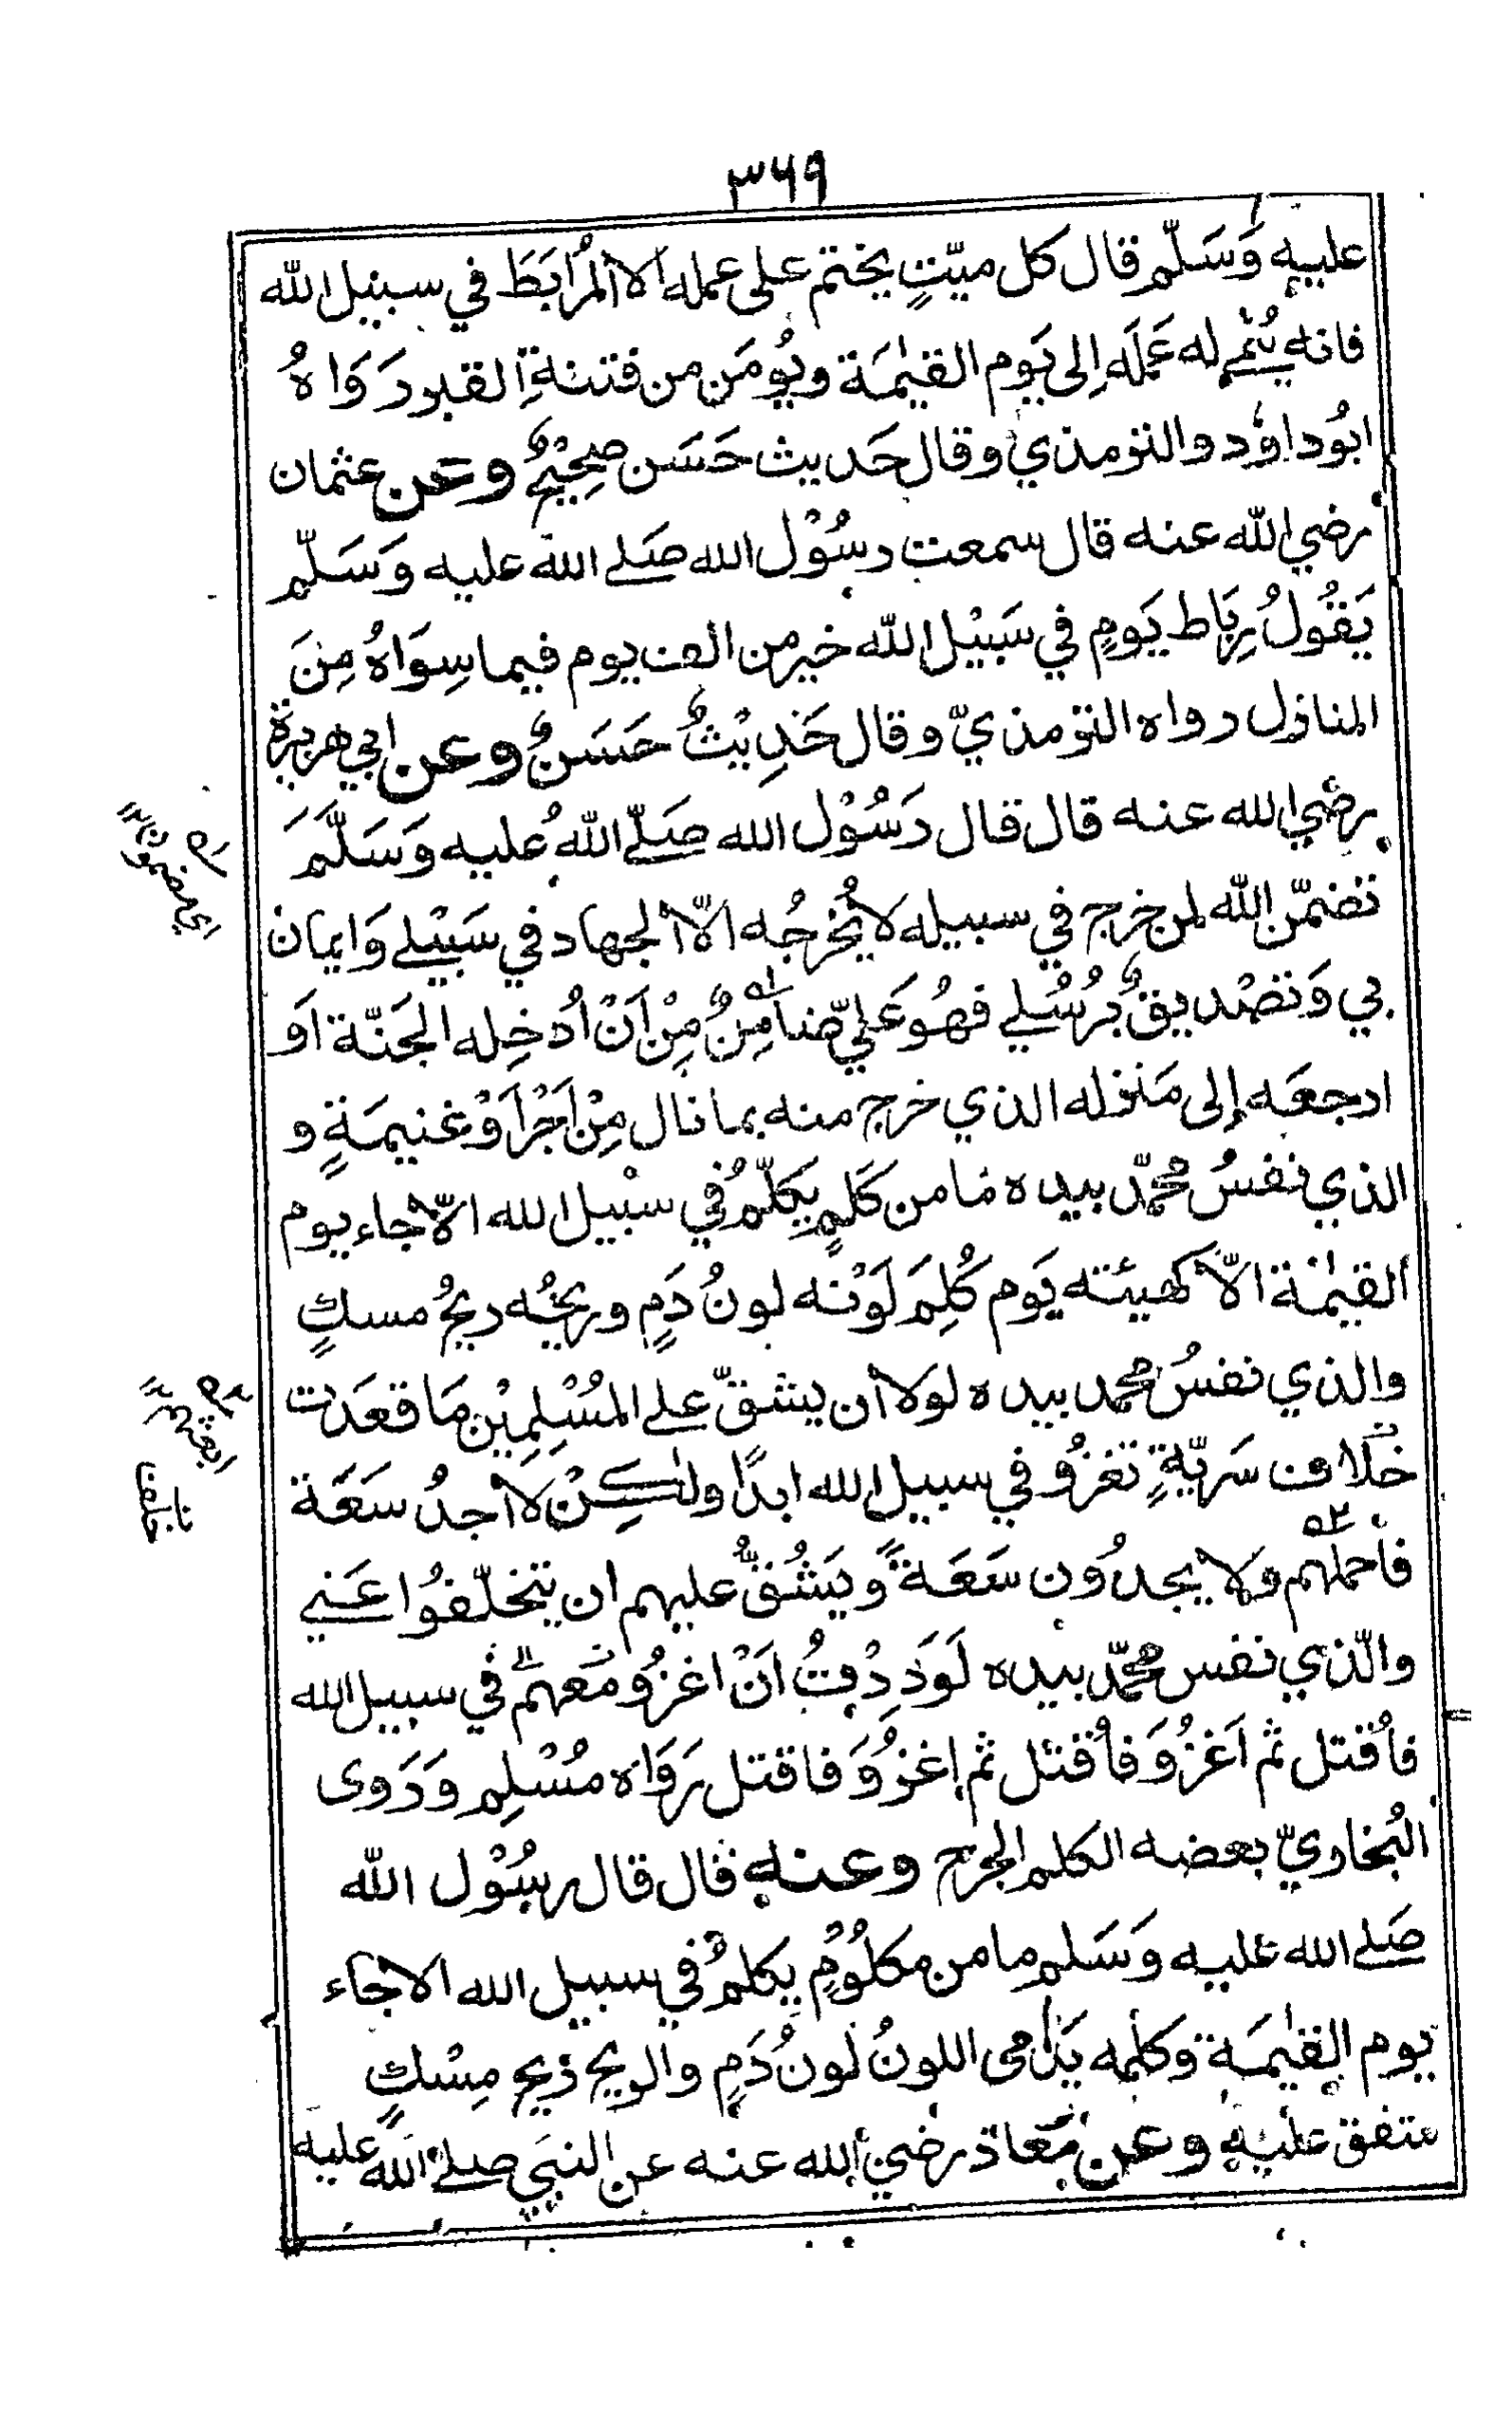 ٣٦٩
عليه وَسَلّم قال كل ميّتٍ يختم على عمله الا المُرَابَطَ في سبيل الله
فانه يُنْمى له عَمَلَه إلى يَوم القيٰمَة ويُومَن من فتنةِ القبر رَوَاهُ
ابُو داوٗد والترمذي وقال حَديث حَسَن صَحِيْحٌ وعن عثمان
رضي الله عنه قال سمعت رسُوْل الله صَلے الله عليه وَسَلّم
يَقُولُ رِبَاط يَومٍ في سَبيْل الله خير من الف يوم فيما سِوَاهُ مِنَ
المنازل رواه الترمذيّ وقال حَدِيْثٌ حَسَنٌ وعن ابي هريرة
رضي الله عنه قال قال رَسُوْل الله صَلّے اللهُ عليه وَسَلَّمَ
تضمّن الله لمن خرج في سبيله لا يُخْرجُه الّا الجهاد في سَبيْلے وَايمان
بي وَتصْديقٌ بُرسُلے فهُوَ عَليّ ضَامِنٌ مِنْ اَنْ اُدخِله الجَنّة اَو
ارجعَه إلى مَنزله الذي خرج منه بما نال مِنْ اَجْرٍ اَوْ غنيمَةٍ و
الذي نفسُ محمّد بيده مَا من كَلمٍ يُكلَمُ في سبيْل الله الّا جاء يوم
القيٰمة الّا كهيئته يَوم كُلِمَ لَوْنه لونُ دَمٍ وريحُه ريحُ مسكٍ
والذي نفسُ محمد بيده لولا أن يشقّ علے المُسْلِمِيْن مَا قعَدت
خلاف سَريّةٍ تغزُو في سبيل الله ابدًا ولٰكِنْ لا اَجدُ سَعَة
فأحملهم ولا يجدُون سَعَةً ويَشُقُّ عليهم ان يتخلّفوُا عَنے
والّذي نفس محمّد بيده لَوَدِدْتُ اَنْ اغزُو مَعهم في سبيل الله
فأقتل ثم اَغزُوَ فأقتل ثم اغزُوَ فاقتل رَوَاه مُسْلِم وَرَوى
البُخاريّ بعضه الكلم الجرح وعنه قال قال رسُوْل الله
صَلے الله عليه وَسَلم ما من مكلُوُمٍ يكلمُ في سبيل الله الا جَاء
يوم القيٰمَة وَكلمه يَدْمى اللونُ لونُ دَمٍ والريح ريح مِسْكٍ
متفق عليه وعن مَعاذ رضي الله عنه عن النبَي صلے الله عليه
اى مضمون